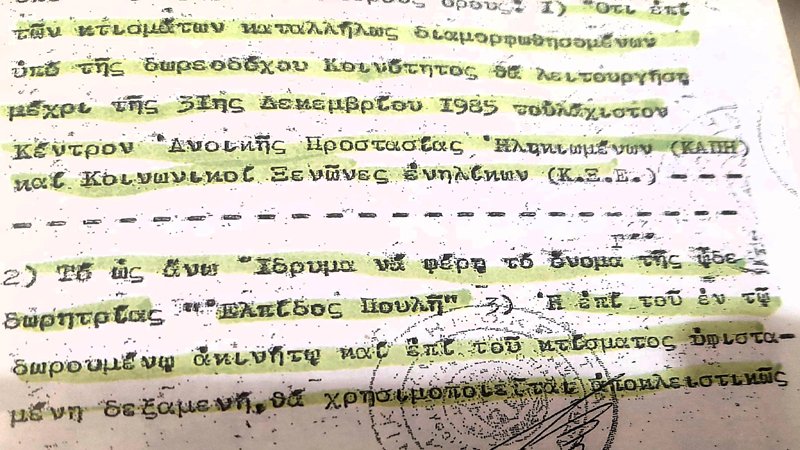 ὅρους: 1) Ὅτι ἐπί
τῶν κτισμάτων καταλλήλως διαμορφωθησομένων
ὑπό τῆς δωρεοδόχου Κοινότητος θά λειτουργήσῃ
μέχρι τῆς 31ης Δεκεμβρίου 1985 τοὐλάχιστον
Κέντρον Ἀνοικῆς Προστασίας Ἡλικιωμένων (ΚΑΠΗ)
καί Κοινωνικοί Ξενῶνες ἐνηλίκων (Κ.Ξ.Ε.) - - -
- - - - - - - - - - - - - - - - - - - -
2) Τό ὡς ἄνω Ἵδρυμα νά φέρῃ τό ὄνομα τῆς ὧδε
δωρητρίας "Ἐλπίδος Πουλῆ" 3) Ἡ ἐπί τοῦ ἐν τῷ
δωρουμένῳ ἀκινήτῳ καί ἐπί τοῦ κτίσματος ὑφιστα-
μένη δεξαμενή, θά χρησιμοποιεῖται ἀποκλειστικῶς